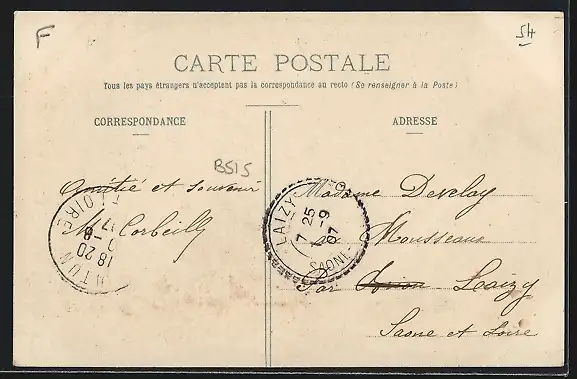 F
54
CARTE POSTALE
Tous les pays étrangers n'acceptent pas la correspondance au recto (Se renseigner à la Poste)
CORRESPONDANCE
ADRESSE
B515
Amitié et souvenir
M Corbeilly
Madame Develay
Mousseaux
Par Laizy
Saone et Loire
LAIZY
7 25 -9 07
SAONE
AUTUN
18 20
LOIRE